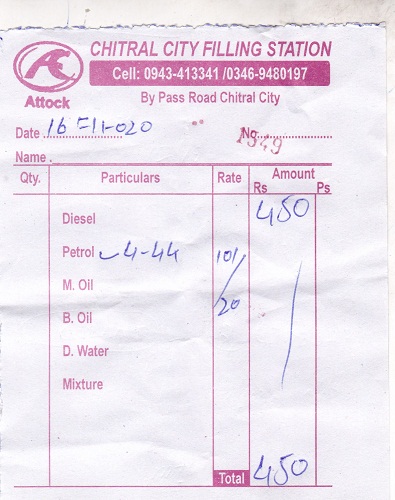 CHITRAL CITY FILLING STATION
Cell: 0943-413341 /0346-9480197
Attock
By Pass Road Chitral City
Date 16-11-020 No. 1349
Name
Qty. Particulars Rate Amount
Rs Ps
Diesel 450
Petrol 4-44 101/20
M. Oil
B. Oil
D. Water
Mixture
Total 450